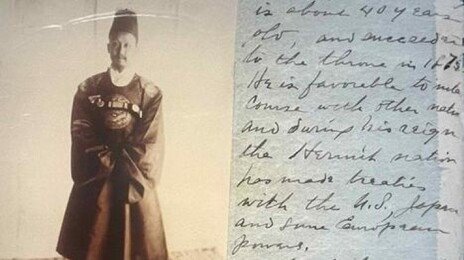 is about 40 years
old, and succeeded
to the throne in 1873
He is favorable to
course with other
and during his reign
the Hermit nation
has made treaties
with the U.S, Japan
and some European
powers.